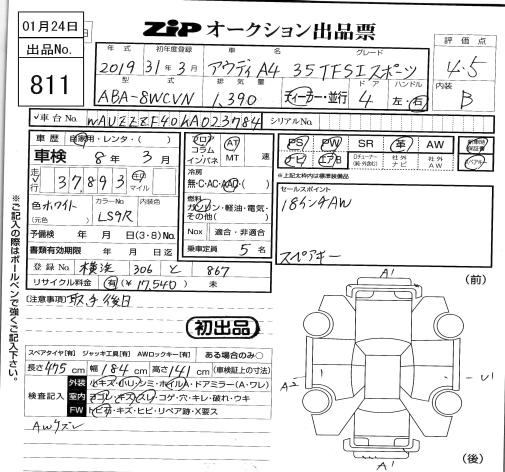 01月24日
ZIP オークション出品票
出品No.
811
年式 初年度登録 車名 グレード
2019 31年3月 アウディA4 35 TFSIスポーツ
型式 排気量 ドア ハンドル
ABA-8WCVN 1,390 ディーラー・並行 4 左・右
評価点
4.5
内装
B
車台No. WAUZZZF40KA023784 シリアルNo.
車歴 自家用・レンタ・( )
車検 8年 3月
走行 37,893 キロ マイル
色 ホワイト (元色) カラーNo. LS9R 内装色
予備検 年 月 日(3・8)No.
書類有効期限 年 月 日迄
登録No. 横浜 306 と 867
リサイクル料金 有(¥17,540) 未
[注意事項] 取、手後日
フロア コラム インパネ
AT MT 速
冷房
無・C・AC・AAC・( )
燃料
ガソリン・軽油・電気・その他( )
Nox 適合・非適合
乗車定員 5名
PS PW SR 革 AW
ナビ エアB Dチューナー (純・外含む) 社外ナビ 社外AW
新車時保証書
※上記太枠内は標準装備品
セールスポイント
18インチAW
スペアキー
初出品
※ご記入の際はボールペンで強くご記入下さい。
スペアタイヤ[有] ジャッキ工具[有] AWロックキー[有] ある場合のみ○
長さ475cm 幅184cm 高さ141cm (車検証上の寸法)
検査記入
外装 小キズ・小U・シミ・ホイルA・ドアミラー(A・ワレ)
室内 ヨゴレ・キズ・スレ・コゲ・穴・キレ・破れ・ウキ
FW トビ石・キズ・ヒビ・リペア跡・X要ス
AWクスレ
(前)
A1
A2
U1
A1
(後)